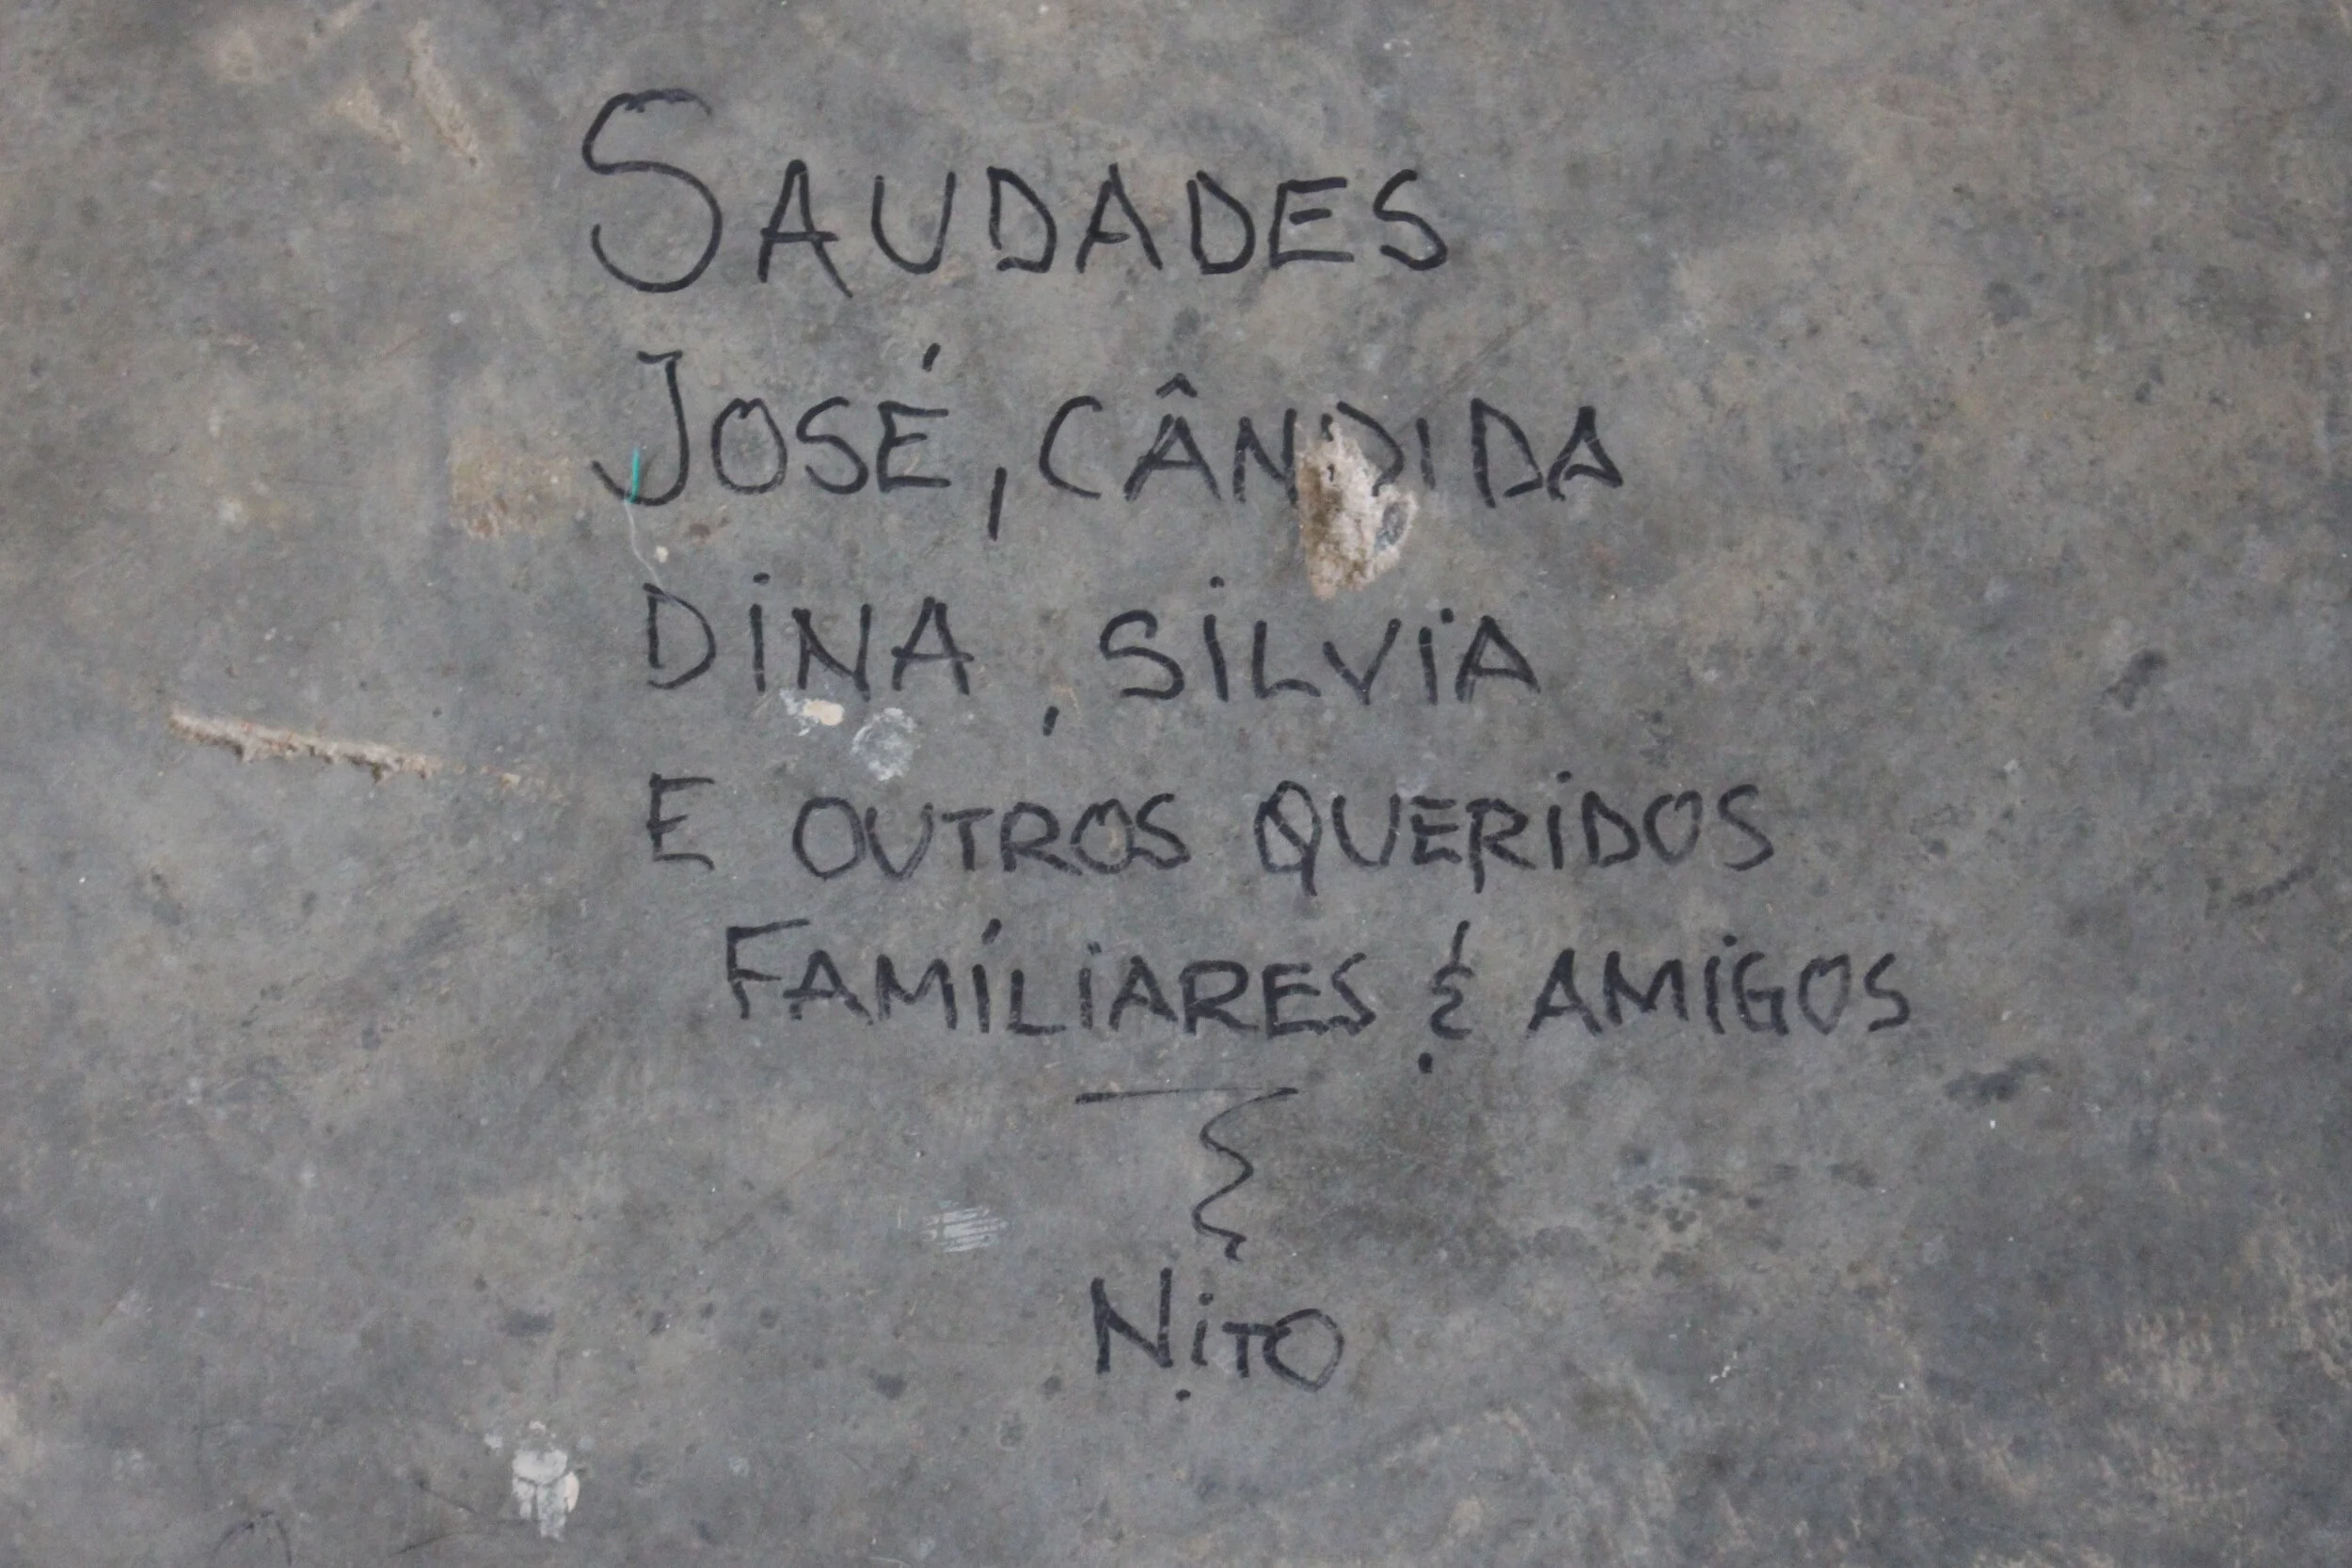 SAUDADES
JOSÉ, CÂNDIDA
DINA, SILVIA
E OUTROS QUERIDOS
FAMÍLIARES & AMIGOS
NITO